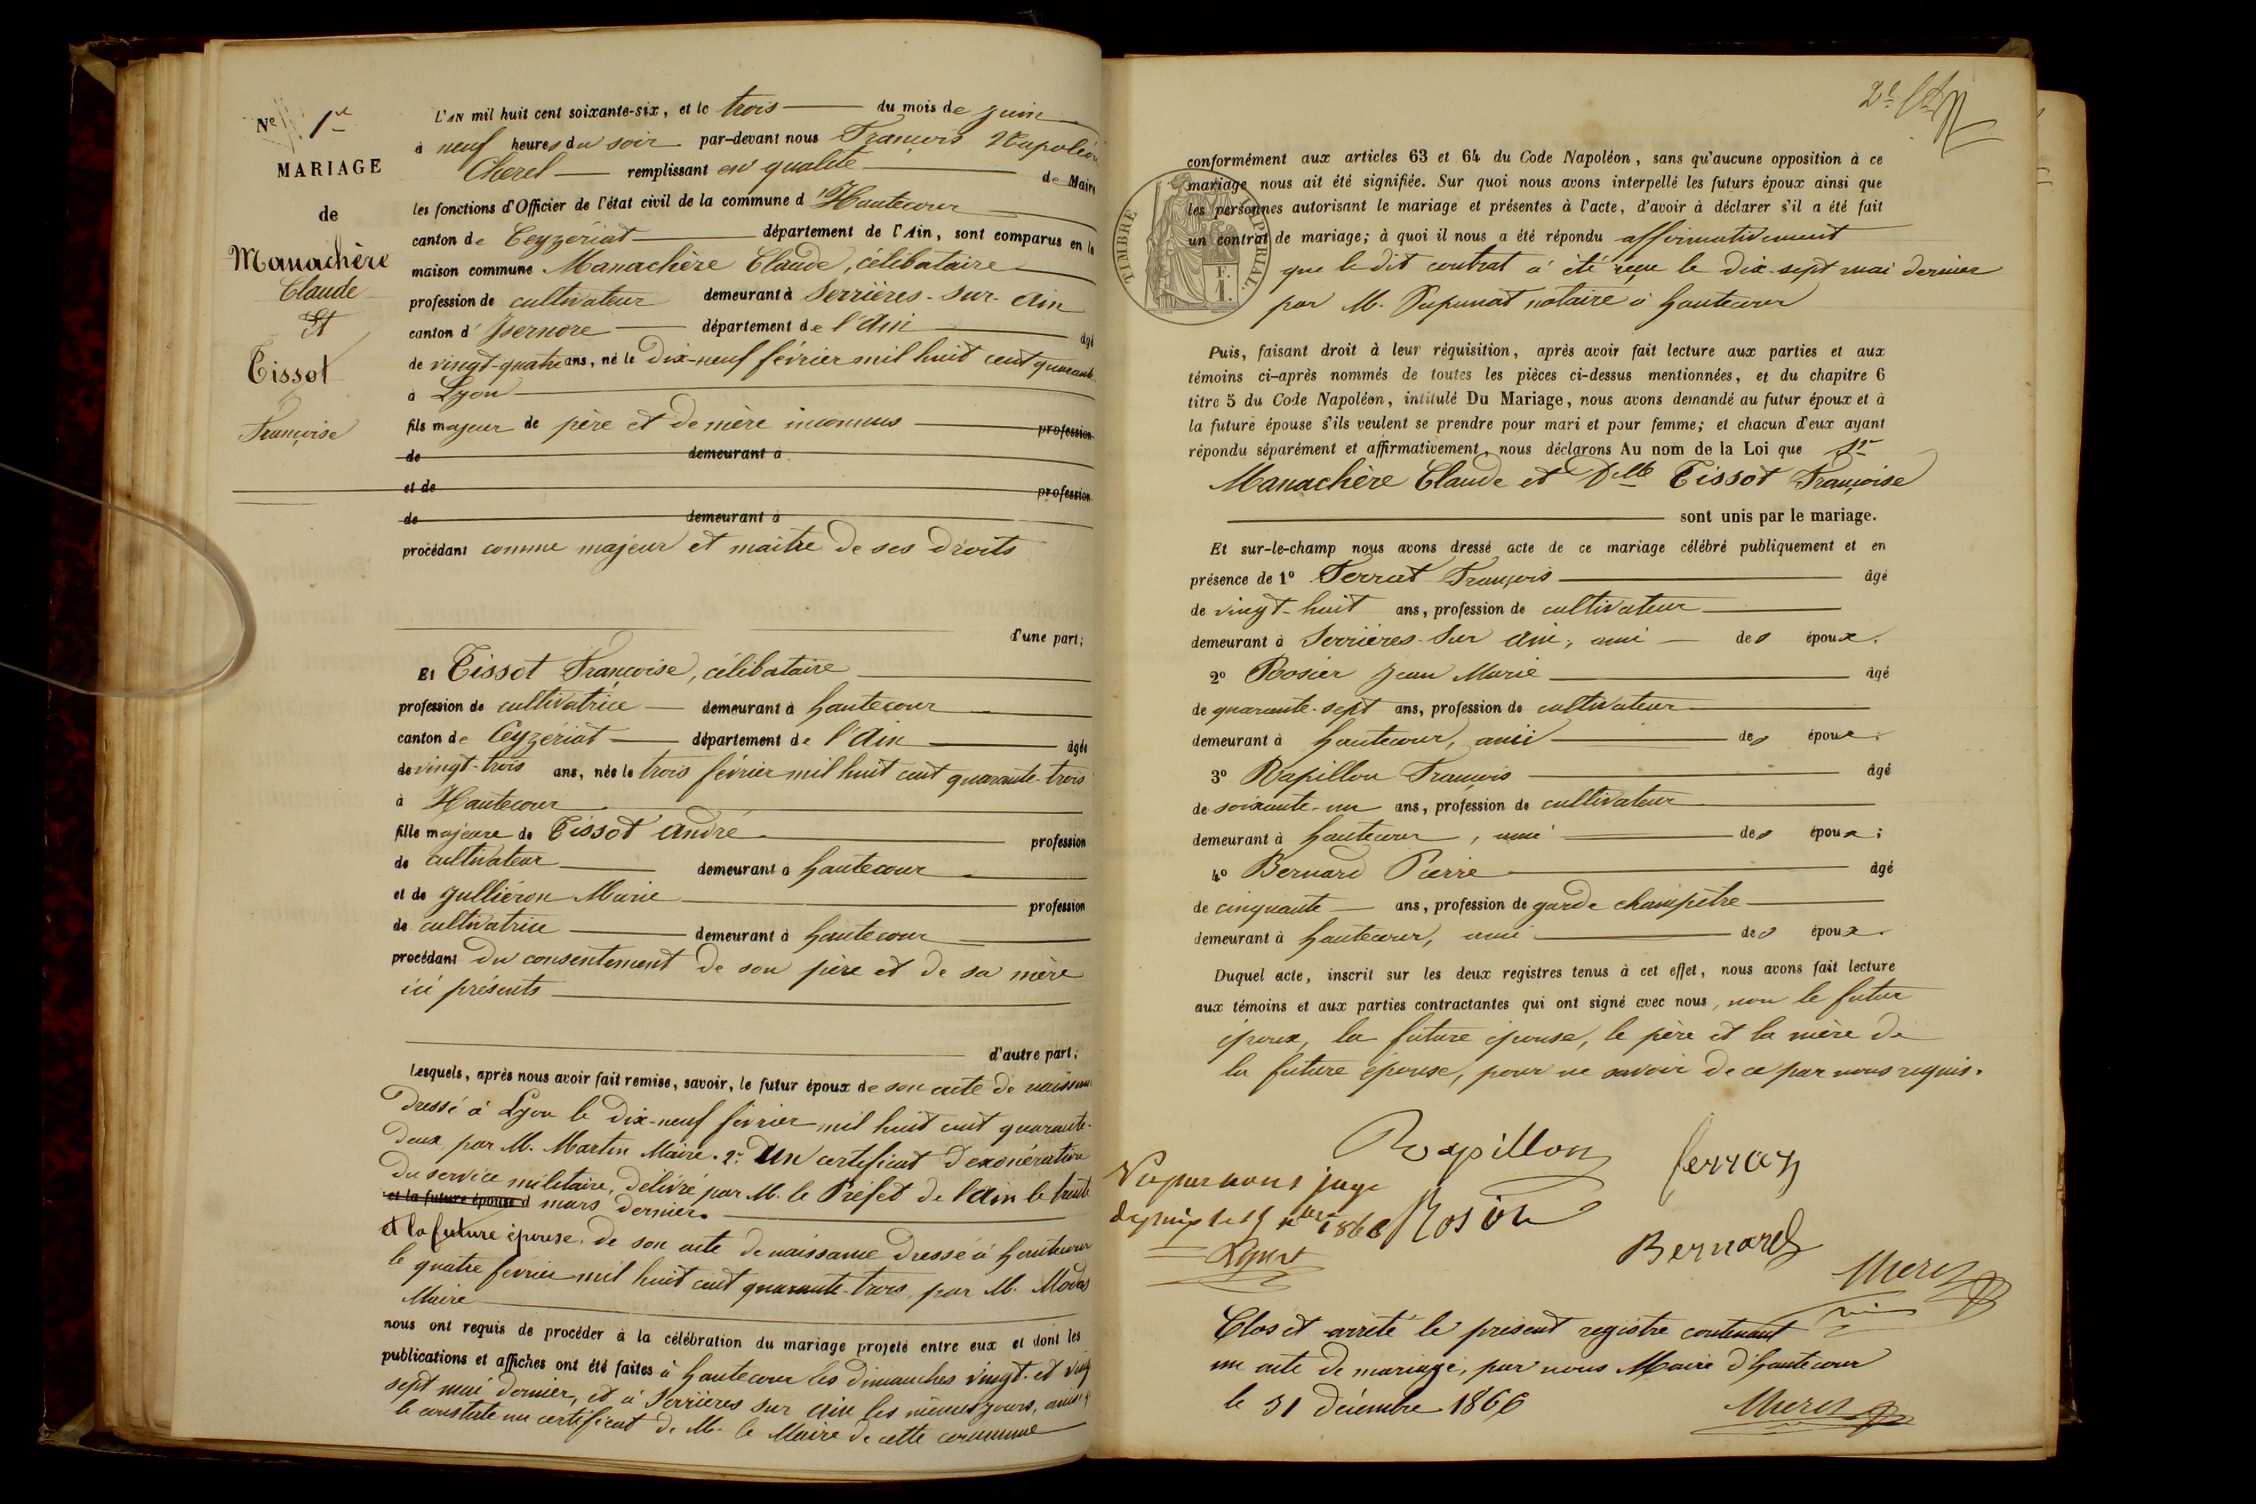 Nº 1er
MARIAGE
de
Manachère
Claude
Et
Tissot
Françoise
L'AN mil huit cent soixante-six, et le trois du mois de juin
à neuf heures du soir par-devant nous François Napoléon
Cherel remplissant en qualité de Maire
les fonctions d'Officier de l'état civil de la commune d'Hautecour
canton de Ceyzériat département de l'Ain, sont comparus en la
maison commune Manachère Claude, célibataire
profession de cultivateur demeurant à Serrières-sur-Ain
canton d'Isernore département de l'Ain âgé
de vingt-quatre ans, né le Dix-neuf février mil huit cent quarante
à Lyon
fils majeur de père et de mère inconnus profession
de demeurant à
et de profession
de demeurant à
procédant comme majeur et maitre de ses droits
d'une part;
Et Tissot Françoise, célibataire
profession de cultivatrice demeurant à hautecour
canton de Ceyzériat département de l'Ain âgée
de vingt-trois ans, née le trois février mil huit cent quarante-trois
à Hautecour
fille majeure de Tissot André profession
de cultivateur demeurant à hautecour
et de Jullieron Marie profession
de cultivatrice demeurant à hautecour
procédant du consentement de son père et de sa mère
ici présents
d'autre part;
Lesquels, après nous avoir fait remise, savoir, le futur époux de son acte de naissance
Dressé à Lyon le Dix-neuf février mil huit cent quarante-
deux par M. Martin Maire. 2º Un certificat d'exonération
du service militaire, délivré par M. le Préfet de l'Ain le trente
et la future épouse d mars dernier.
et la future épouse. de son acte de naissance dressé à hautecour
le quatre février mil huit cent quarante-trois, par M.
Maire
nous ont requis de procéder à la célébration du mariage projeté entre eux et dont les
publications et affiches ont été faites à hautecour les dimanches vingt et vingt
sept mai dernier, et à Serrières sur Ain les mêmes jours, ainsi q
le constate un certificat de M. le Maire de cette commune
2e
TIMBRE IMPÉRIAL
conformément aux articles 63 et 64 du Code Napoléon, sans qu'aucune opposition à ce
mariage nous ait été signifiée. Sur quoi nous avons interpellé les futurs époux ainsi que
les personnes autorisant le mariage et présentes à l'acte, d'avoir à déclarer s'il a été fait
un contrat de mariage; à quoi il nous a été répondu affirmativement
que le dit contrat a été reçu le dix-sept mai dernier
par M. Pupunat notaire à hautecour
Puis, faisant droit à leur réquisition, après avoir fait lecture aux parties et aux
témoins ci-après nommés de toutes les pièces ci-dessus mentionnées, et du chapitre 6
titre 5 du Code Napoléon, intitulé Du Mariage, nous avons demandé au futur époux et à
la future épouse s'ils veulent se prendre pour mari et pour femme; et chacun d'eux ayant
répondu séparément et affirmativement, nous déclarons Au nom de la Loi que Sr
Manachère Claude et Delle Tissot Françoise
sont unis par le mariage.
Et sur-le-champ nous avons dressé acte de ce mariage célébré publiquement et en
présence de 1º Ferrat François âgé
de vingt-huit ans, profession de cultivateur
demeurant à Serrières-sur Ain, ami des époux.
2º Rosier Jean Marie âgé
de quarante-sept ans, profession de cultivateur
demeurant à hautecour, ami des époux.
3º Rapillon François âgé
de soixante-un ans, profession de cultivateur
demeurant à hautecour, ami des époux;
4º Bernard Pierre âgé
de cinquante ans, profession de garde champêtre
demeurant à hautecour, ami des époux.
Duquel acte, inscrit sur les deux registres tenus à cet effet, nous avons fait lecture
aux témoins et aux parties contractantes qui ont signé avec nous, non le futur
époux, la future épouse, le père et la mère de
la future épouse, pour ne savoir de ce par nous requis.
Rapillon
Vu par nous juge
1866
Rosier
Bernard
Clos et arrêté le présent registre contenant
un acte de mariage, par nous Maire d'hautecour
le 31 décembre 1866